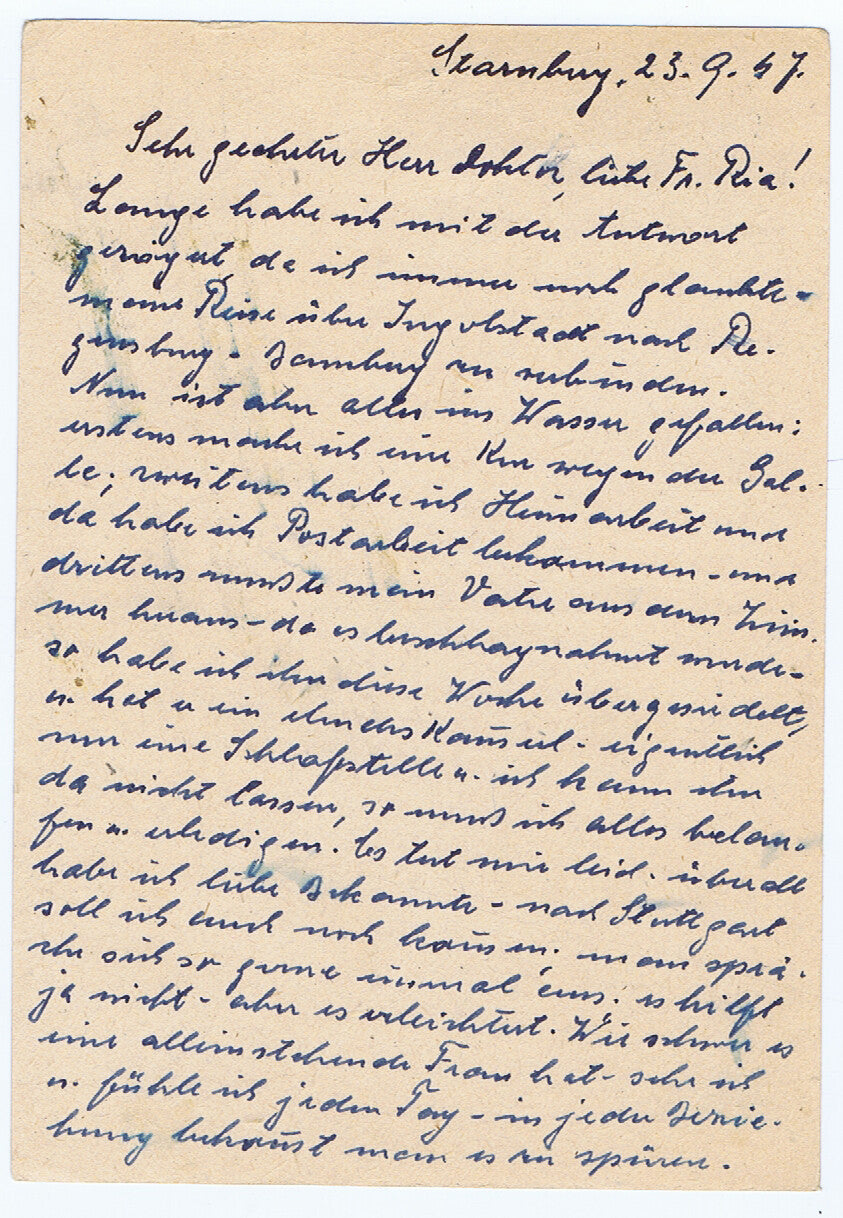 Starnberg, 23. 9. 47.
Sehr geehrter Herr Doktor, liebe Fr. Ria!
Lange habe ich mit der Antwort
gezögert, da ich immer noch glaubte -
meine Reise über Ingolstadt nach Re-
gensburg - Bamberg zu verbinden.
Nun ist aber alles ins Wasser gefallen:
erstens mache ich eine Kur wegen der Gal-
le; zweitens habe ich Heimarbeit und
da habe ich Postarbeit bekommen - und
drittens musste mein Vater aus dem Zim-
mer heraus - da es beschlagnahmt wurde -
so habe ich ihn diese Woche übergesiedelt,
u. hat er ein Kammerl - eigentlich
nur eine Schlafstelle u. ich kann ihn
da nicht lassen, so muß ich alles belau-
fen u. erledigen. Es tut mir leid - überall
habe ich liebe Bekannte - nach Stuttgart
soll ich auch noch kommen. man sprä-
che sich so gerne einmal aus. es hilft
ja nicht - aber es erleichtert. Wie schwer es
eine alleinstehende Frau hat - sehe ich
u. fühle ich jeden Tag - in jeder Bezie-
hung bekommt man es zu spüren.